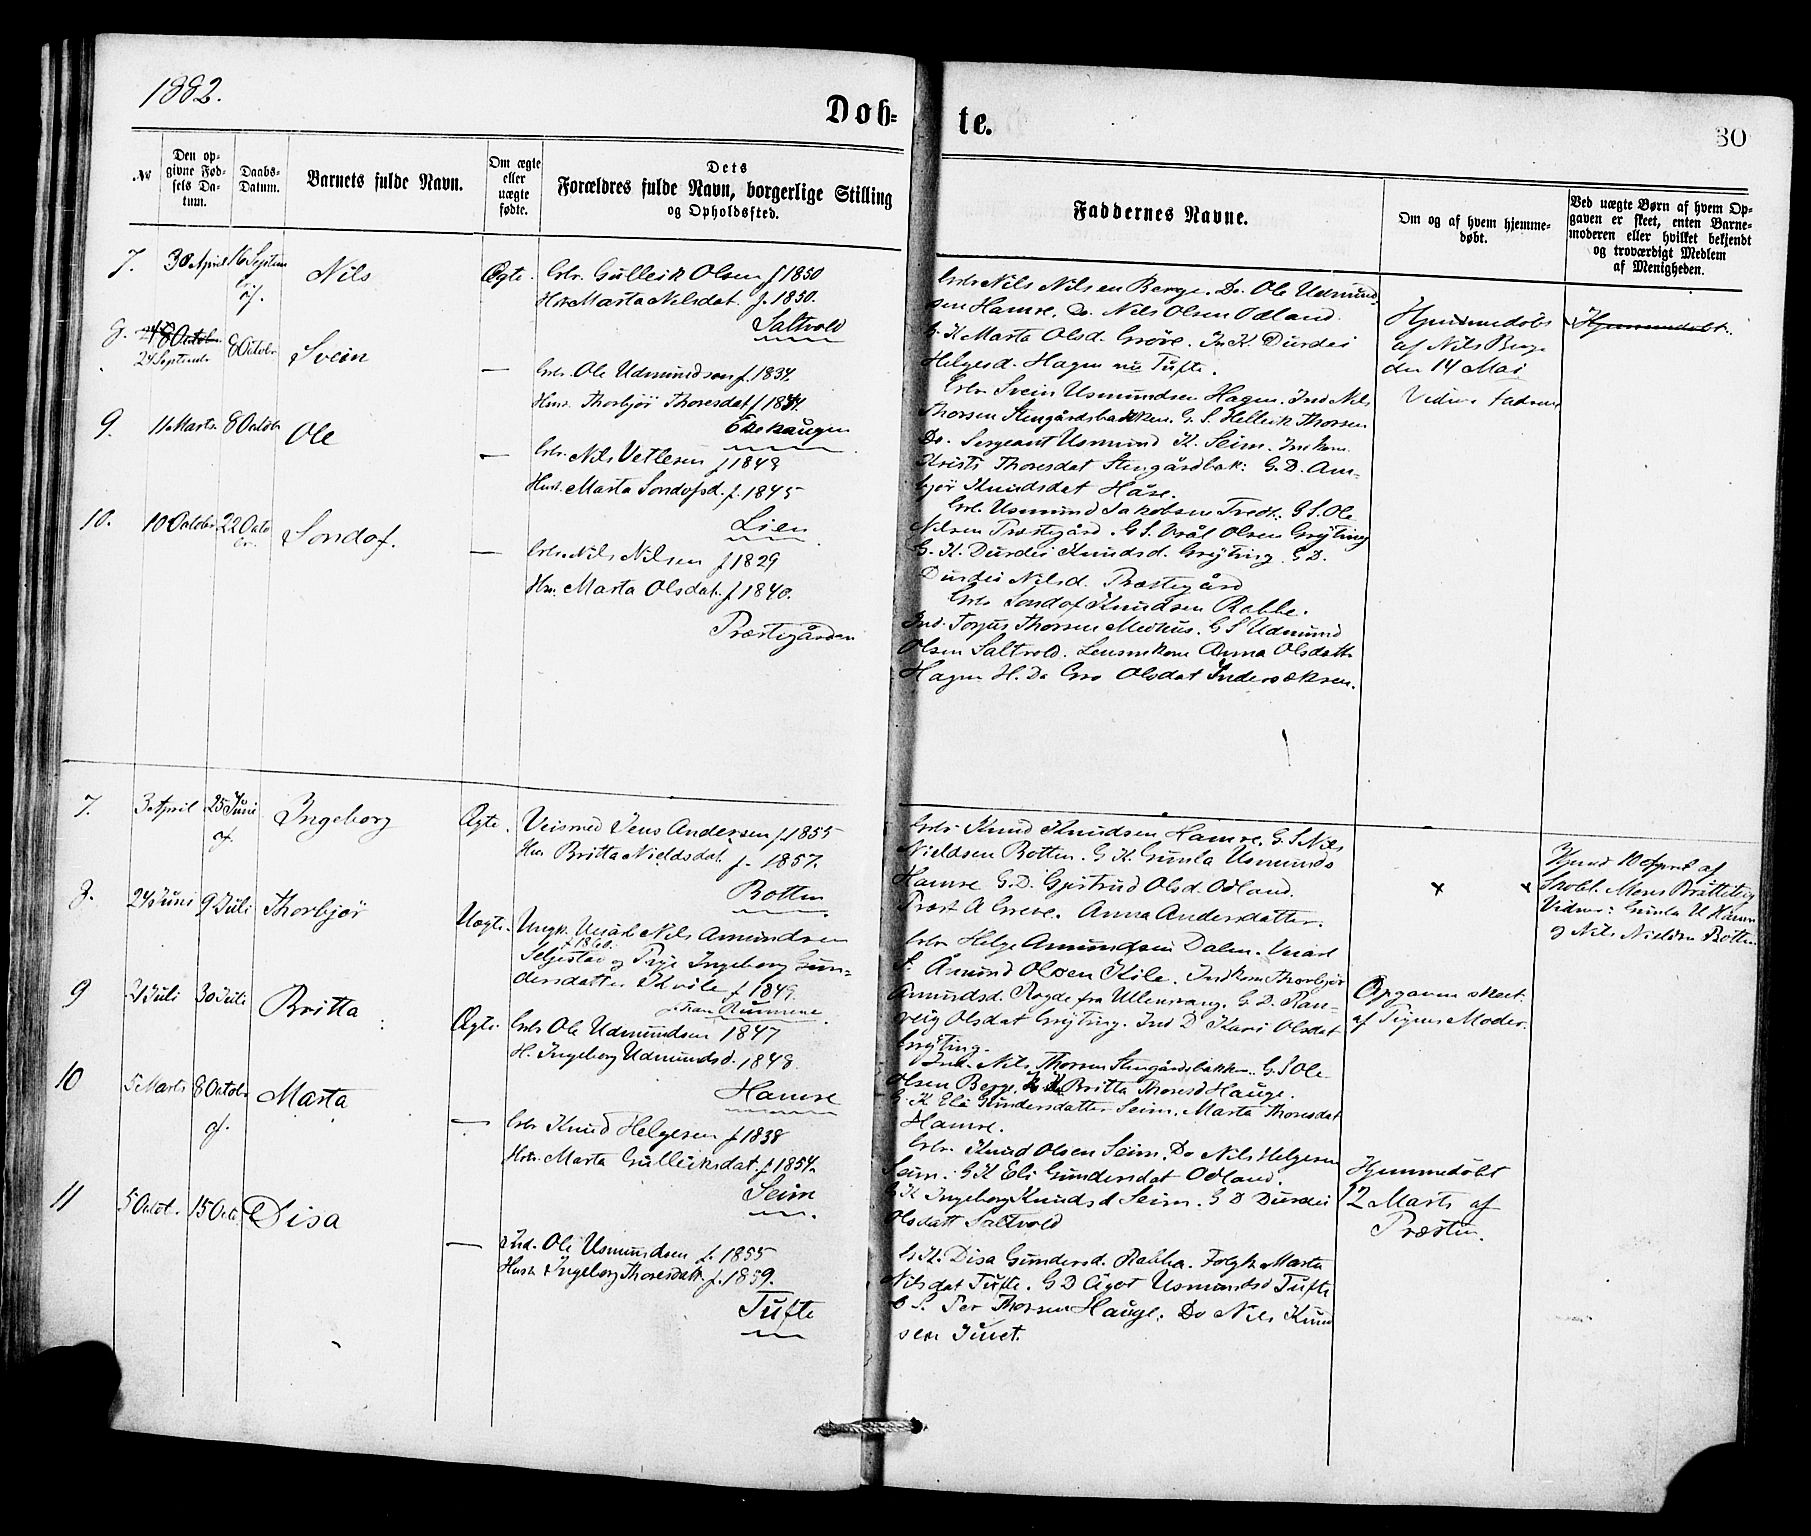 1882.
Döb-
te.
30
№
Den op-
givne Fød-
sels Da-
tum.
Daabs-
Datum.
Barnets fulde Navn.
Om ægte
eller
uægte
fødte.
Dets
Forældres fulde Navn, borgerlige Stilling
og Opholdssted.
Faddernes Navne.
Om og af hvem hjemme-
døbt.
Ved uægte Børn af hvem Op-
gaven er skeet, enten Barne-
moderen eller hvilket bekjendt
og troværdigt Medlem
af Menigheden.
7. 30 April 16 Septem
Nils
Ægte. Gbr. Gulleik Olsen f 1850
Hstr Marta Nilsdat. f. 1850.
Saltvold
Gbr Nils Nilsen Berge. Do. Ole Udmund-
sen Hamre. Do. Nils Olsen Odland
G. K Marta Olsd. Grøve. In K. Durdei
Helgesd. Hagen nu Tufte.
Hjemmedøbt
af Nils Berge
den 14 Mai
Vidner Fadrene
Hjemmedøbt.
8. 24 Septembr 8 Octobr Svein
— Gbr. Ole Udmundson f. 1834.
Hust. Thorbjör Thoresdat f
Ekehaugen
Gbr Svein Usmundsen Hagen. Ind Nils
Thorsen Stengårdsbakken. G. S. Helleik Thorsen
Do. Sergeant Usmund K. Seim. Indkone
Kristi Thoresdat Stengårdbak: G. D. Am-
björ Knudsdat Håse.
9. 11 Marts 8 Octobr Ole
— Gbr. Nils Vetlesen f 1848
Hust. Marta Sondofsd. f. 1845
Lien
Gbr. Usmund Jakobsen Tredt. G S. Ole
Nilsen Præstegård. G S. Vrål Olsen Grÿting
G. K. Durdei Knudsd. Grÿting. G D.
Durdei Nilsd. Præstegård
10. 10 Octobr 22 Octo
br. Sondof.
— Gbr. Nils Nilsen f 1829
Hus. Marta Olsdat. f 1840.
Præstegården
Gbr Sondof Knudsen Rabbe.
Ind. Torjus Thorsen Medhus. G S Udmund
Olsen Saltvold. Lensmkone Anna Olsdatt.
Hagen H. Do Gro Olsdat Inderoeksen.
7. 3 April 25 Juni Ingeborg
Ægte. Veismed Jens Andersen f. 1855
Hus Britta Nieldsdat. f. 1857.
Botten
Gbr Knud Knudsen Hamre. G. S Nils
Nieldsen Botten. G K. Gunla Usmunds
Hamre G. D. Gjertrud Olsd. Odland.
Præst A Greve. Anna Andersdatter.
x
x
Hjemd 10 April af
Skobl. Mons Bratteteig
Vidner: Gunla U Hamre
og Nils Nieldsen Botten
8. 24 Juni 9 Juli Thorbjör
Uægte. Ungk. Nils Amundsen
f 1860.
Seljestad og Pige Ingeborg Gun-
dersdatter f. 1849.
fra
Gbr Helge Amundsen Dalen.
S. Åmund Olsen Kile. Indkone Thorbjör
Amundsd. Rogde fra Ullensvang. G. D. Ran-
veig Olsdat Grÿting. Ind D Kari Olsdat
Grÿting.
Opgaven skeet
af Pigens Moder.
9 21 Juli 30 Juli Britta
Ægte. Gbr Ole Udmundsen 1847
H. Ingeborg Udmundsd. 1848.
Hamre
Ind. Nils Thorsen Stengårdsbakken. G. S Ole
Olsen Berge. Britta Thoresd Hauge.
G. K Eli Gundersdatter Seim. Marta Thoresdat
Hamre.
10 5 Marts 8 Octobr Marta
— Gbr Knud Helgesen f 1838
Hstr. Marta Gulleiksdat. f 1854.
Seim
Gbr. Knud Olsen Seim. Do Nils Helgesen
Seim. G K Eli Gundersdat Odland.
G K Ingeborg Knudsd Seim. G D Durdei
Olsdatt Saltvold
Hjemmedöbt
12 Marts af
Præsten.
11 5 Octbr. 15 Octb Disa
— Ind. Ole Usmundsen f. 1855
Hustr Ingeborg Thoresdatt. f. 1859.
Tufte
G. K. Disa Gundersd. Rabba. Folgk. Marta
Nilsdat Tufte. G D Ågot Usmundsd Tufte
G S. Per Thorsen Hauge. Do Nils Knud
sen Juvet.